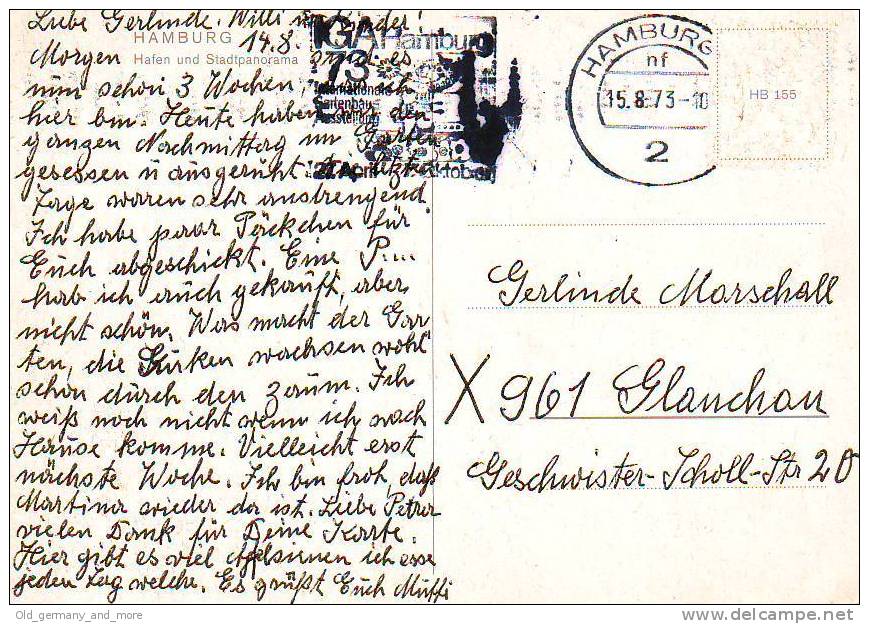 Liebe Gerlinde. Willi u. Kinder!
HAMBURG
Hafen und Stadtpanorama
Morgen 14.8. sind es
nun schon 3 Wochen, 
hier bin. Heute haben den
ganzen Nachmittag im Garten
gesessen u ausgeruht. letzten
Tage waren sehr anstrengend.
Ich habe paar Päckchen für
Euch abgeschickt. Eine P....
hab ich auch gekauft, aber
nicht schön. Was macht der Gar
ten, die Gurken wachsen wohl
schon durch den Zaum. Ich
weiß noch nicht wenn ich nach
Hause komme. Vielleicht erst
nächste Woche. Ich bin froh, daß
Martina wieder da ist. Liebe Petra
vielen Dank für Deine Karte.
Hier gibt es viel Apfelsienen ich esse
jeden Tag welche. Es grüßt Euch Mutti
IGA Hamburg
73
Internationale
Gartenbau
Ausstellung
27. April Oktober
HAMBURG
nf
15.8.73-10
2
HB 155
Gerlinde Marschall
X 961 Glauchau
Geschwister-Scholl-Str 20
Old_germany_and_more
www.delcampe.net